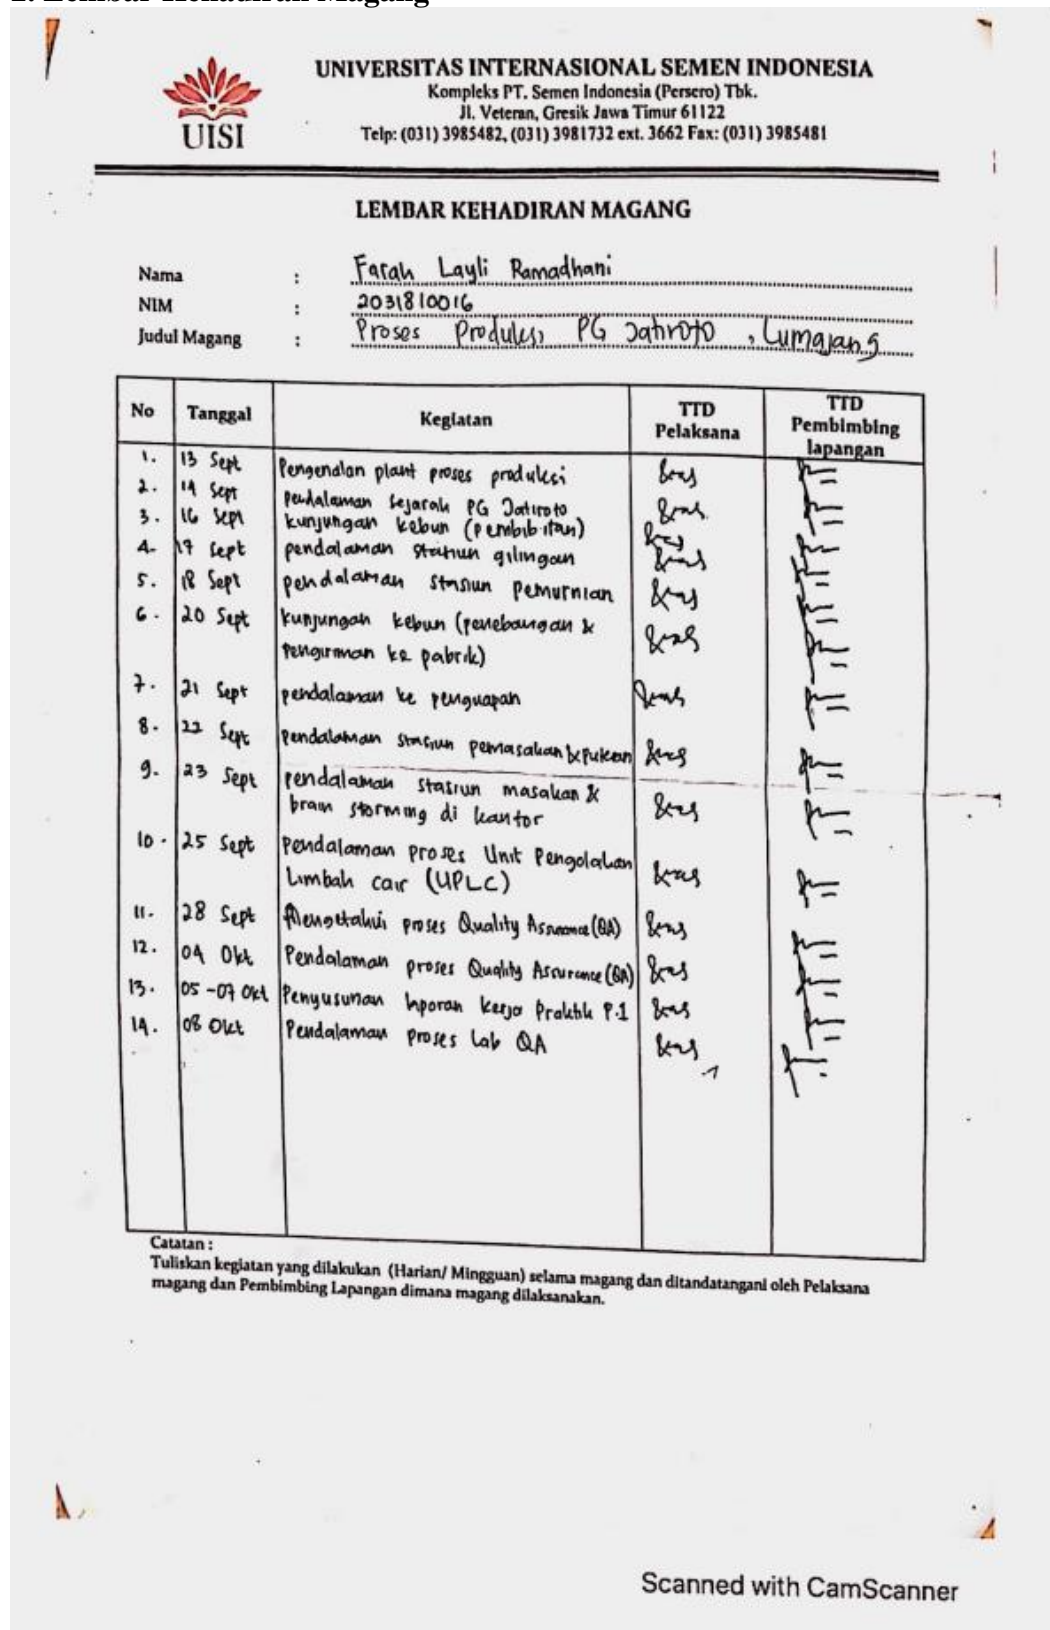 2. Lembar Kehadiran Magang
UISI
UNIVERSITAS INTERNASIONAL SEMEN INDONESIA
Kompleks PT. Semen Indonesia (Persero) Tbk.
Jl. Veteran, Gresik Jawa Timur 61122
Telp: (031) 3985482, (031) 3981732 ext. 3662 Fax: (031) 3985481
LEMBAR KEHADIRAN MAGANG
Nama : Farah Layli Ramadhani
NIM : 2031810016
Judul Magang : Proses Produksi PG Jatiroto , Lumajang
No Tanggal Kegiatan TTD Pelaksana TTD Pembimbing lapangan
1. 13 Sept Pengenalan plant proses produksi
2. 14 Sept pendalaman sejarah PG Jatiroto
3. 16 Sept kunjungan kebun (pembibitan)
4. 17 Sept pendalaman stasiun gilingan
5. 18 Sept pendalaman stasiun pemurnian
6. 20 Sept kunjungan kebun (penebangan &
pengiriman ke pabrik)
7. 21 Sept pendalaman ke penguapan
8. 22 Sept pendalaman stasiun pemasakan &
9. 23 Sept pendalaman stasiun masakan &
brain storming di kantor
10. 25 Sept Pendalaman proses Unit Pengolahan
Limbah cair (UPLC)
11. 28 Sept Mengetahui proses Quality Assurance (QA)
12. 04 Okt Pendalaman proses Quality Assurance (QA)
13. 05-07 Okt Penyusunan laporan Kerja Praktik P.1
14. 08 Okt Pendalaman proses Lab QA
Catatan :
Tuliskan kegiatan yang dilakukan (Harian/ Mingguan) selama magang dan ditandatangani oleh Pelaksana
magang dan Pembimbing Lapangan dimana magang dilaksanakan.
Scanned with CamScanner